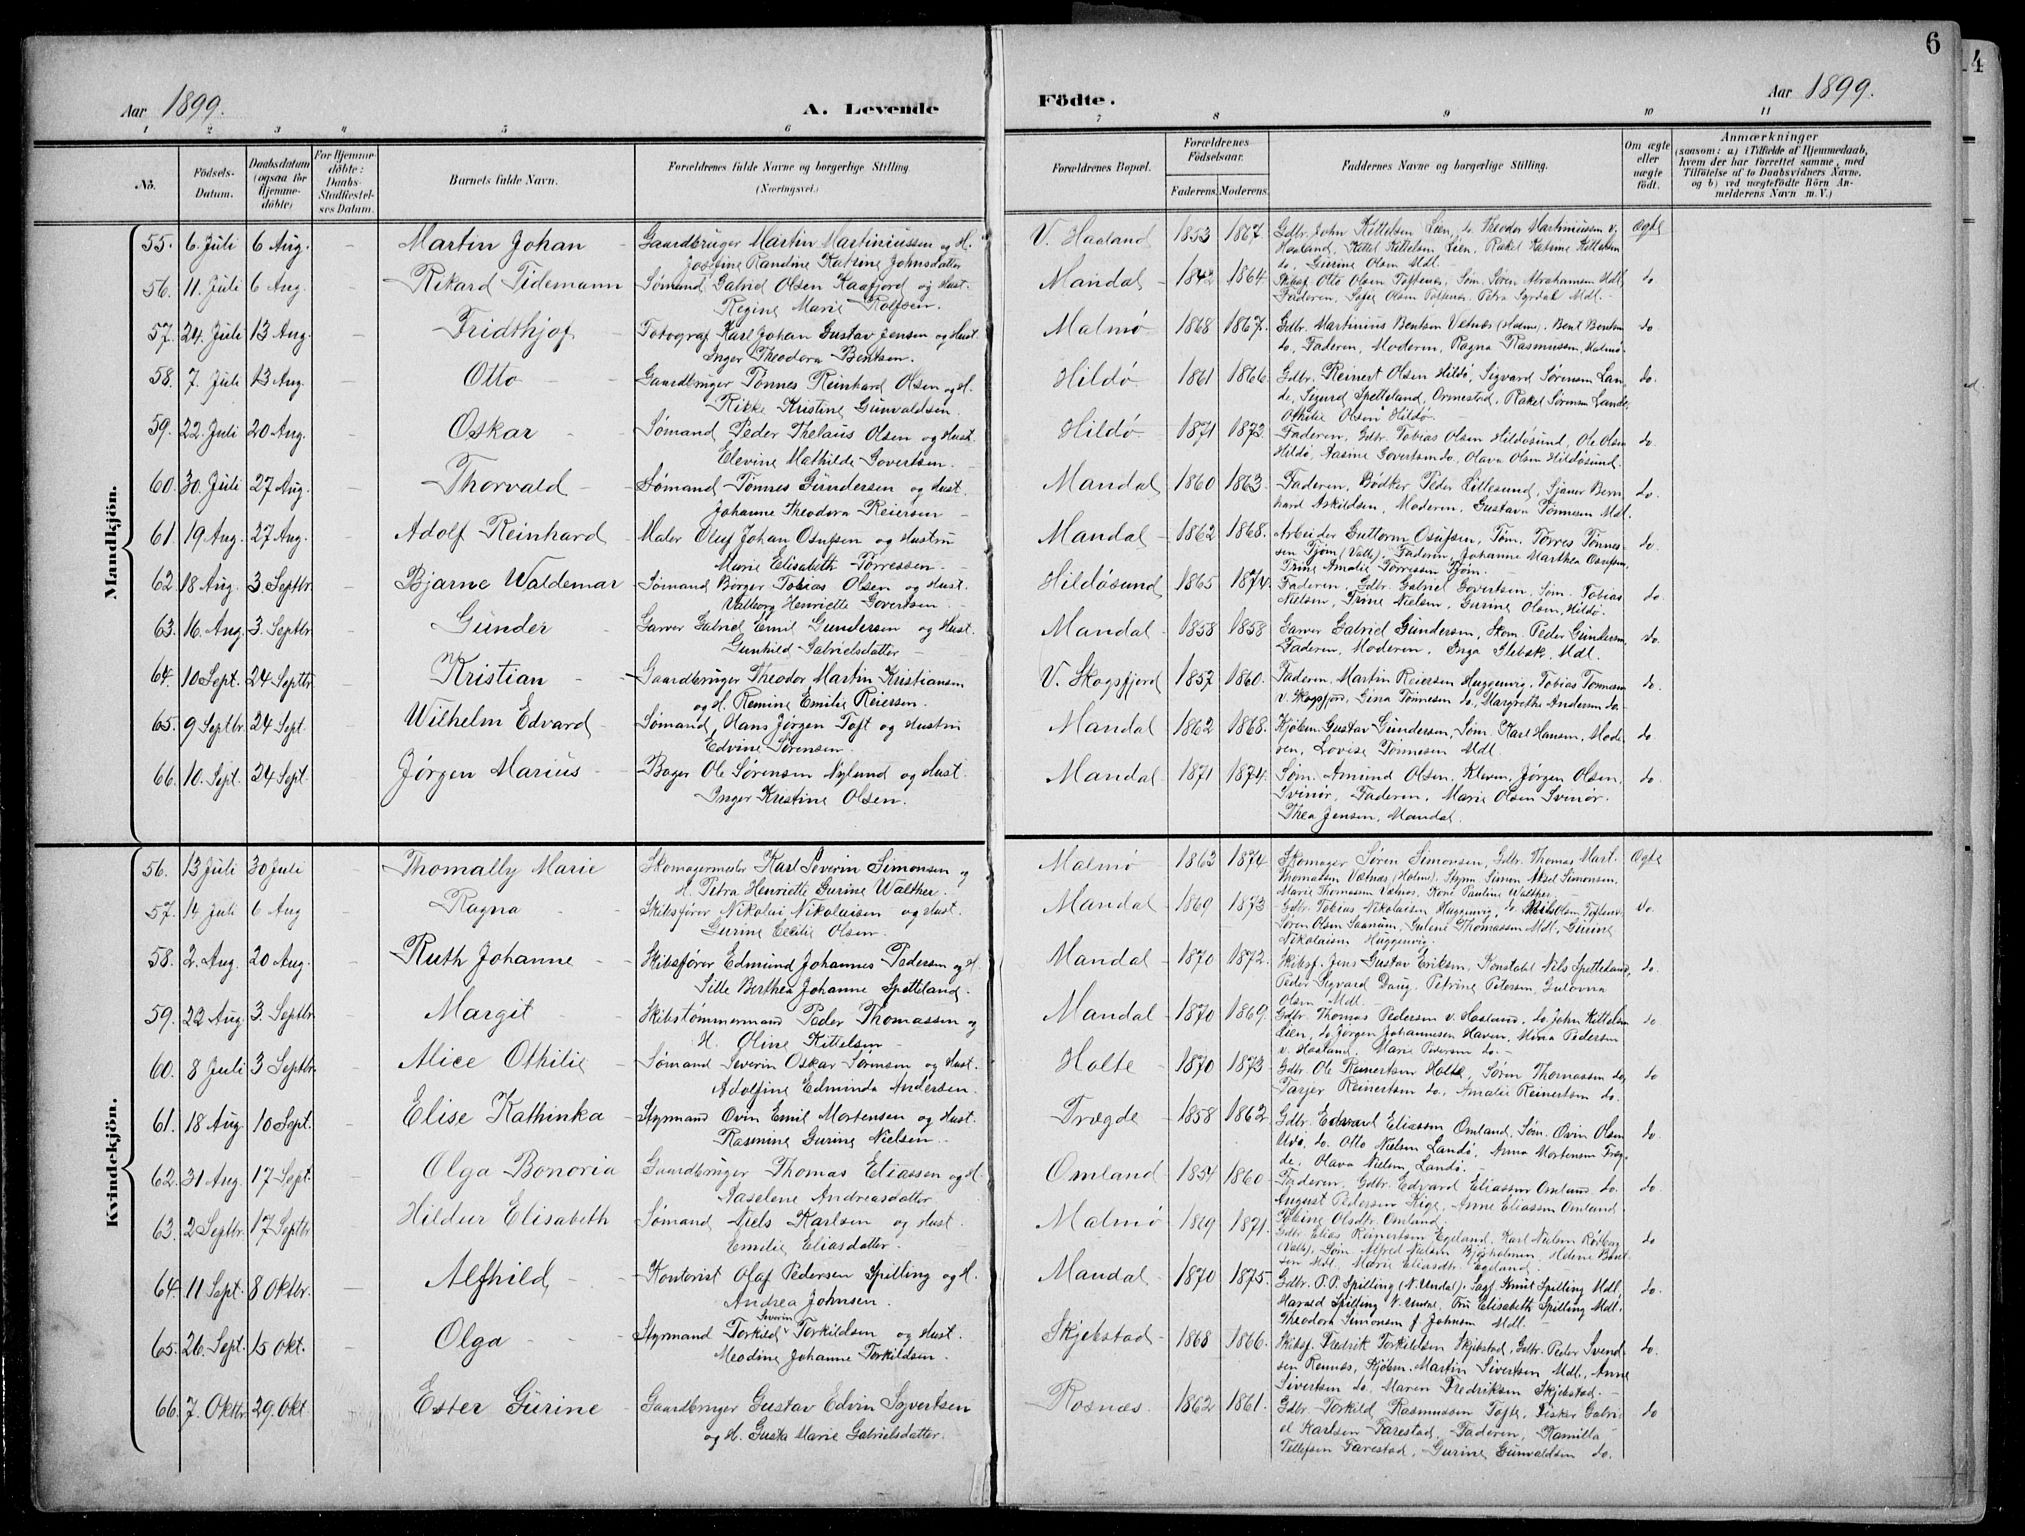 6
4
Aar 1899.
A. Levende
Födte.
Aar 1899.
1 2 3 4 5 6 7 8 9 10 11
No.
Födsels-Datum.
Daabsdatum (ogsaa for Hjemme-döbte)
For Hjemme-döbte: Daabs-Stadfæstel-ses Datum.
Barnets fulde Navn.
Forældrenes fulde Navne og borgerlige Stilling (Næringsvei.)
Forældrenes Bopæl.
Forældrenes Födselsaar.
Faderens. Moderens.
Faddernes Navne og borgerlige Stilling.
Om ægte eller uægte födt.
Anmærkninger
(saasom: a) i Tilfælde af Hjemmedaab, hvem der har forrettet samme, med Tilföielse af to Daabsvidners Navne, og b) ved uægtefödte Börn An-melderens Navn m. V.)
Mandkjön.
55. 6. Juli 6 Aug. – Martin Johan – Gaardbruger Martin Martiniussen og H. Josefine Randine Katrine Johnsdatter V. Haaland 1853 1867. Gdbr. John Kittelsen Lien, do Theodor Martiniussen v. Haaland, Kittel Kittelsen Lien, Rakel Katrine Kittelsen do, Gurine Olsen Mdl. Ægte
56. 11. Juli 6 Aug. – Rikard Tidemann Sømand Gabriel Olsen Kaafjord og Hust. Regine Marie Rolfsen. Mandal 1842 1864. Skibsf. Otto Olsen Toftenes, Søm. Søren Abrahamsen Mdl, Faderen, Sofie Olsen Toftenes, Petra Syrdal Mdl. do
57. 24. Juli 13 Aug. – Fridthjof Fotograf Karl Johan Gustav Jensen og Hust. Inger Theodora Bentsen. Malmø 1868 1867. Gdbr. Martinius Bentsen Vetnes (Holme). Bent Bentsen do, Faderen, Moderen, Ragna Rasmussen, Malmø. do
58. 7. Juli 13 Aug. – Otto – Gaardbruger Tønnes Reinhard Olsen og H. Rikke Kristine Gunvaldsen. Hildø 1861 1866. Gdbr. Reinert Olsen Hildø, Sigvard Sørensen Lande, Sigurd Spetteland, Ormestad, Rakel Sørensen Lande, Othilie Olsen Hildø. do.
59. 22. Juli 20 Aug. – Oskar – Sømand Peder Thelaus Olsen og Hust. Elevine Mathilde Govertsen. Hildø 1871 1872. Faderen, Gdbr. Tobias Olsen Hildøsund, Ole Olsen Hildø, Aasine Govertsen do, Olava Olsen Hildøsund. do.
60. 30. Juli 27 Aug. – Thorvald – Sømand Tønnes Gundersen og Hust. Johanne Theodora Reiersen – Mandal 1860 1863. Faderen, Bødker Peder Lillesund, Sjauer Bernhard Askildsen, Moderen, Gustava Tønnesen Mdl. do.
61. 19 Aug. 27 Aug. – Adolf Reinhard Maler Oluf Johan Osufsen og Hustru Marie Elisabeth Torressen. Mandal 1862 1868. Arbeider Guttorm Osufsen, Tøm. Torres Tønnessen Tjøm (Valle). Faderen, Johanne Marthea Osufsen, Trine Amalie Torressen Tjøm. do.
62 18 Aug. 3. Septbr. – Bjarne Waldemar Sømand Børger Tobias Olsen og Hust. Valborg Henriette Govertsen. Hildøsund 1865 1874. Faderen, Gdbr. Gabriel Govertsen, Søm. Tobias Nielsen, Trine Nielsen, Gurine Olsen, Hildø. do.
63. 16 Aug. 3. Septbr. – Gunder Garver Gabriel Emil Gundersen og Hust. Gunhild Gabrielsdatter – Mandal 1858 1858 Garver Gabriel Gundersen, Skom. Peder Gundersen, Faderen, Moderen, Inga Glebsk. Mdl. do.
64. 10 Sept. 24 Septbr. – Kristian – Gaardbruger Theodor Martin Kristiansen og H. Remine Emilie Reiersen. V. Skogsfjord 1857 1860. Faderen, Martin Reiersen Huggenvig, Tobias Tønnesen v. Skogsfjord, Gina Tønnesen do, Margrethe Andersen do. do.
65. 9 Septbr. 24 Sept. – Wilhelm Edvard Sømand Hans Jørgen Toft og Hustru Edvine Sørensen. Mandal 1862 1868. Kjøbm. Gustav Gundersen, Søm. Karl Hansen, Moderen, Lovise Tønnesen Mdl. do.
66. 10. Sept. 24 Sept. – Jørgen Marius Bager Ole Sørensen Nylund og Hust. Inger Kristine Olsen. Mandal 1871 1874. Søm. Amund Olsen, Kleven, Jørgen Olsen, Svinør, Faderen, Marie Olsen Svinør. Thea Jensen, Mandal. do.
Kvindekjön.
56. 13 Juli 30 Juli – Thomally Marie Skomagermester Karl Severin Simonsen og H. Petra Henriette Gurine Walther. Malmø 1863 1874. Skomager Søren Simonsen, Gdbr. Thomas Mart. Thomassen Vætnes (Holme), Styrm. Simon Aksel Simonsen, Marie Thomassen Vætnes, Kone Pauline Walther. Ægte
57. 14 Juli 6 Aug – Ragna – Skibsfører Nikolai Nikolaisen og Hust. Gurine Cecilie Olsen. Mandal 1869 1873 Gdbr. Tobias Nikolaisen Huggenvig, do. Nils Olsen Toftenes, Søren Olsen Saanum, Gulene Thomassen Mdl, Gurine Nikolaisen Huggenvig. do.
58. 2. Aug. 20 Aug. – Ruth Johanne Skibsfører Edmund Johannes Pedersen og H. Sille Berthea Johanne Spetteland. Mandal 1870 1872. Skibsf. Jens Gustav Eriksen, Konstabel Nils Spetteland, Peder Sigvard Daug, Petrine Petersen, Gulovna Olsen Mdl. do.
59. 22 Aug. 3. Septbr. – Margit – Skibstømmermand Peder Thomassen og H. Oline Kittelsen – Mandal 1870 1869. Gdbr. Thomas Pedersen v. Haaland, do. John Kittelsen Lien, do. Jørgen Johannesen Haven, Mina Pedersen v. Haaland, Marie Pedersen do. do
60. 8 Juli 3 Septbr. – Alice Othilie Sømand Severin Oskar Sørensen og Hust. Adolfine Edminda Andersen. Holte 1870 1873 Gdbr. Ole Reinertsen Holte, Søren Thomassen do, Tarjer Reinertsen do, Amalie Reinertsen do. do
61. 18 Aug. 10 Sept. – Elise Kathinka Styrmand Ovin Emil Mortensen og Hust. Rasmine Gurine Nielsen. Trægde 1858 1862. Gdbr. Edvard Eliassen Omland, Søm. Øvin Olsen Udø, do. Otto Nielsen Landø, Anna Mortensen Trægde, Olava Nielsen, Landø. do.
62. 31 Aug. 17 Sept. – Olga Bonoria Gaardbruger Thomas Eliassen og H. Aaselene Andreasdatter. Omland 1854 1860. Faderen, Gdbr. Edvard Eliassen Omland, do. August Pedersen Kige, Anne Eliassen Omland. Tobine Olsdtr. Omland. do.
63. 2 Septbr. 17 Septbr. – Hildur Elisabeth Sømand Niels Karlsen og Hust. Emilie Eliasdatter. Malmø 1869 1871. Gdbr. Elias Reinertsen Egeland, Karl Nielsen (Valle), Søm. Alfred Nielsen Bjørholmen, Helene Bentsen Mdl, Marie Eliasdtr. Egeland. do
64. 11 Sept. 8 Oktbr. – Alfhild – Kontorist Olaf Pedersen Spilling og H. Andrea Johnsen. Mandal 1870 1875. Gdbr. P.P. Spilling (N. Undal). Sagf. Knut Spilling Mdl, Harald Spilling N. Undal, Fru Elisabeth Spilling Mdl. Theodora Simonsen f. Johnsen Mdl. do.
65. 26. Sept. 15 Okt. – Olga – Styrmand Torkild Severin Torkildsen og Hust. Meodine Johanne Torkildsen. Skjebstad 1868 1866. Skibsf. Fredrik Torkildsen Skjebstad, Gdbr. Peder Svendsen Ronnes, Kjøbm. Martin Sivertsen Mdl, Anne Sivertsen do, Maren Fredriksen Skjebstad. do
66. 7. Oktbr. 29. Okt. Ester Gurine Gaardbruger Gustav Edvin Sajvertsen og H. Gusta Marie Gabrielsdatter. Rosnæs. 1862 1861. Gdbr. Torkild Rasmussen Tofte, Fisker Gabriel Karlsen Farestad, Faderen, Kamilla Tellefsen Farestad, Gurine Gunvaldsen do. do